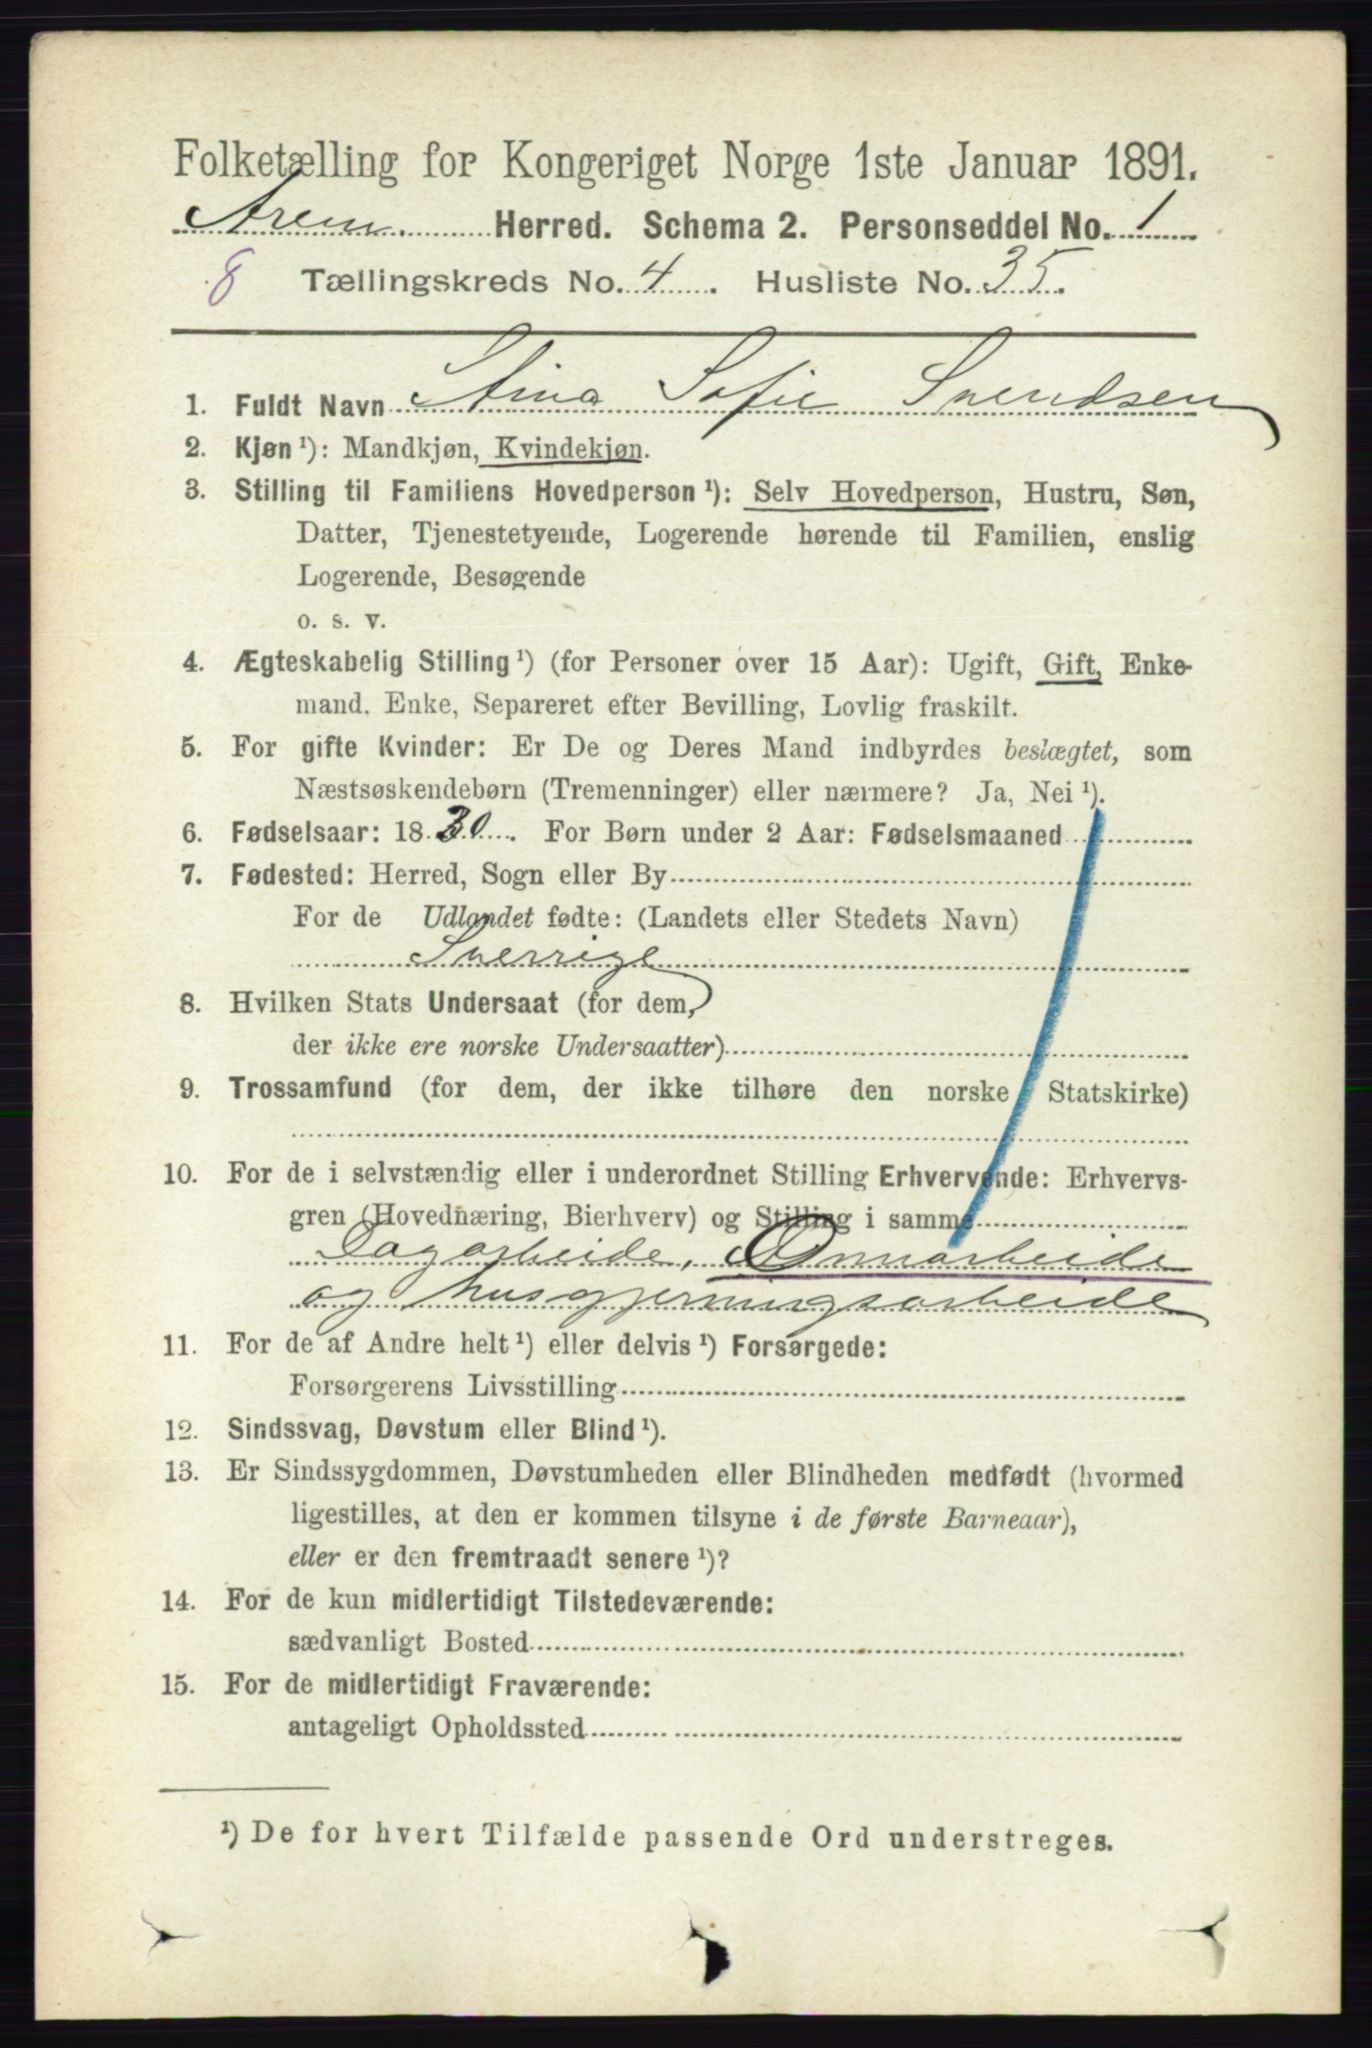 Folketælling for Kongeriget Norge 1ste Januar 1891.
Arem. Herred. Schema 2. Personseddel No. 1
8 Tællingskreds No. 4. Husliste No. 35.
1. Fuldt Navn Stina Sofie Svendsen
2. Kjøn ¹): Mandkjøn, Kvindekjøn.
3. Stilling til Familiens Hovedperson ¹): Selv Hovedperson, Hustru, Søn,
Datter, Tjenestetyende, Logerende hørende til Familien, enslig
Logerende, Besøgende
o. s. v.
4. Ægteskabelig Stilling ¹) (for Personer over 15 Aar): Ugift, Gift, Enke-
mand, Enke, Separeret efter Bevilling, Lovlig fraskilt.
5. For gifte Kvinder: Er De og Deres Mand indbyrdes beslægtet, som
Næstsøskendebørn (Tremenninger) eller nærmere? Ja, Nei ¹).
6. Fødselsaar: 1830. For Børn under 2 Aar: Fødselsmaaned
7. Fødested: Herred, Sogn eller By
For de Udlandet fødte: (Landets eller Stedets Navn)
Sverrige
8. Hvilken Stats Undersaat (for dem,
der ikke ere norske Undersaatter)
9. Trossamfund (for dem, der ikke tilhøre den norske Statskirke)
10. For de i selvstændig eller i underordnet Stilling Erhvervende: Erhvervs-
gren (Hovednæring, Bierhverv) og Stilling i samme
Dagarbeide, Onnarbeide
og husgjerningsarbeide
11. For de af Andre helt ¹) eller delvis ¹) Forsørgede:
Forsørgerens Livsstilling
12. Sindssvag, Døvstum eller Blind ¹).
13. Er Sindssygdommen, Døvstumheden eller Blindheden medfødt (hvormed
ligestilles, at den er kommen tilsyne i de første Barneaar),
eller er den fremtraadt senere ¹)?
14. For de kun midlertidigt Tilstedeværende:
sædvanligt Bosted
15. For de midlertidigt Fraværende:
antageligt Opholdssted
¹) De for hvert Tilfælde passende Ord understreges.